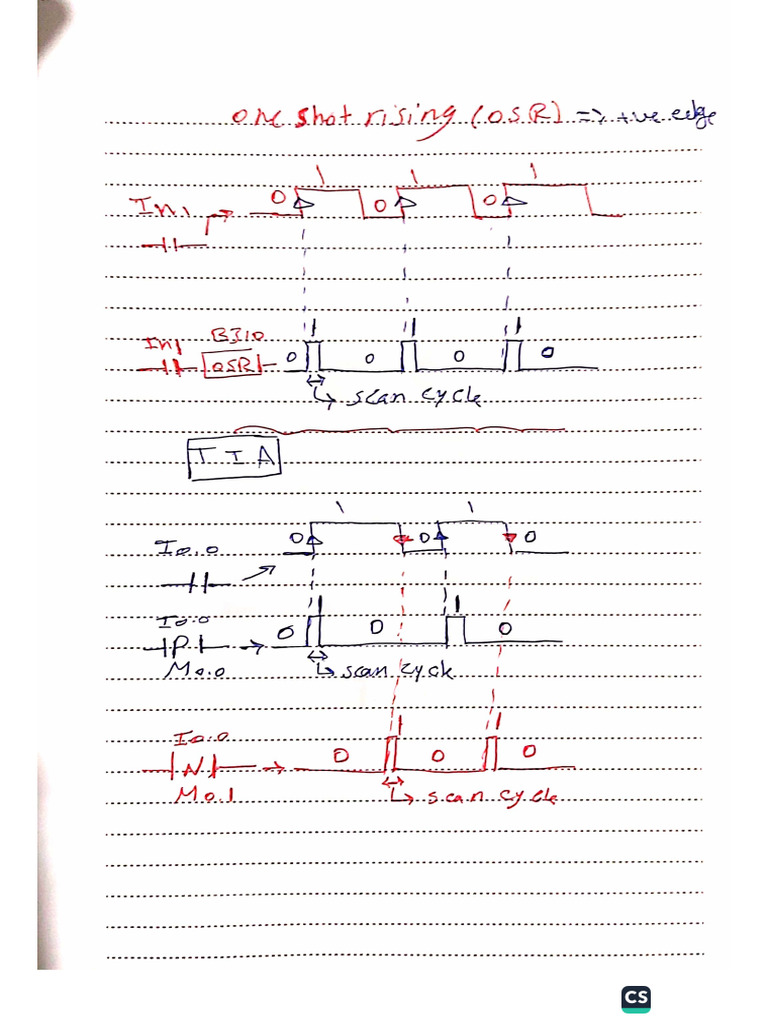 one shot rising (OSR) => +ve edge
1 1 1
In1 0 0 0
1 1 1
In1 B3/0 OSR 0 0 0 0
scan cycle
TIA
1 1
I0.0 0 0 0
I0.0 1 1
P 0 0 0
M0.0 scan cycle
I0.0 1 1
N 0 0 0
M0.1 scan cycle
CS